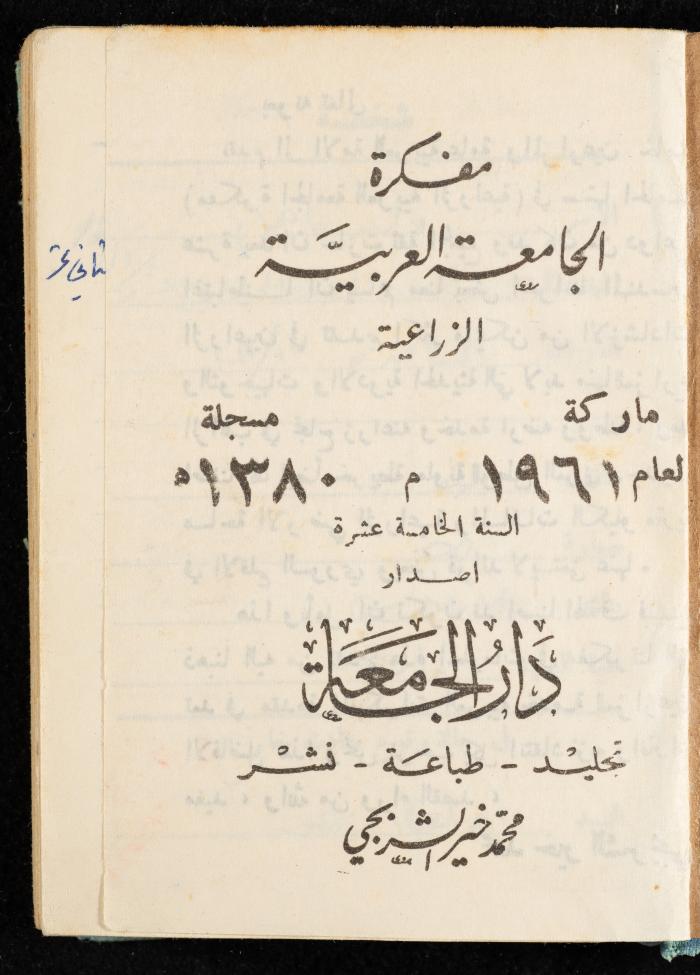 مفكرة
الجامعة العربيَّة
الزراعية
ماركة مسجلة
لعام ١٩٦١ م ١٣٨٠ ه
السنة الخامسة عشرة
اصدار
دَارُ الجَامعَة
تجليد - طباعَة - نشر
محمّد خير الشربجي